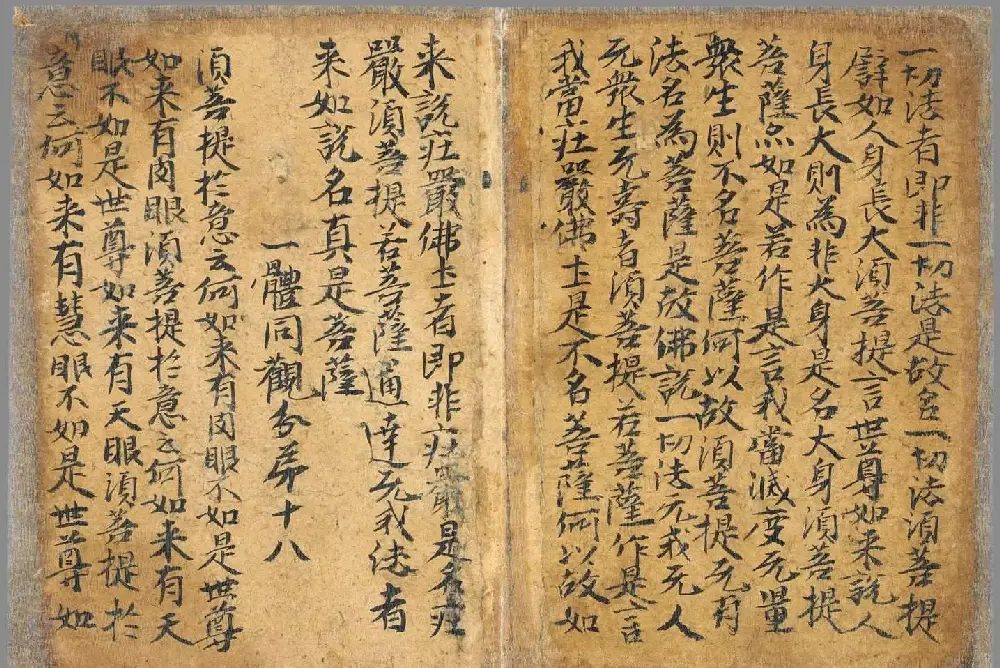 一切法者即非一切法是故名一切法須菩提
譬如人身長大須菩提言世尊如来說人
身長大則為非大身是名大身須菩提
菩薩亦如是若作是言我當滅度无量
衆生則不名菩薩何以故須菩提无有
法名為菩薩是故佛說一切法无我无人
无衆生无壽者須菩提若菩薩作是言
我當庄嚴佛土是不名菩薩何以故如
来說庄嚴佛土者即非庄嚴是名庄
嚴須菩提若菩薩通達无我法者
来如說名真是菩薩
一體同觀分苐十八
須菩提扵意云何如来有肉眼不如是世尊
如来有肉眼須菩提扵意云何如来有天
眼不如是世尊如来有天眼須菩提扵
意云何如来有慧眼不如是世尊如